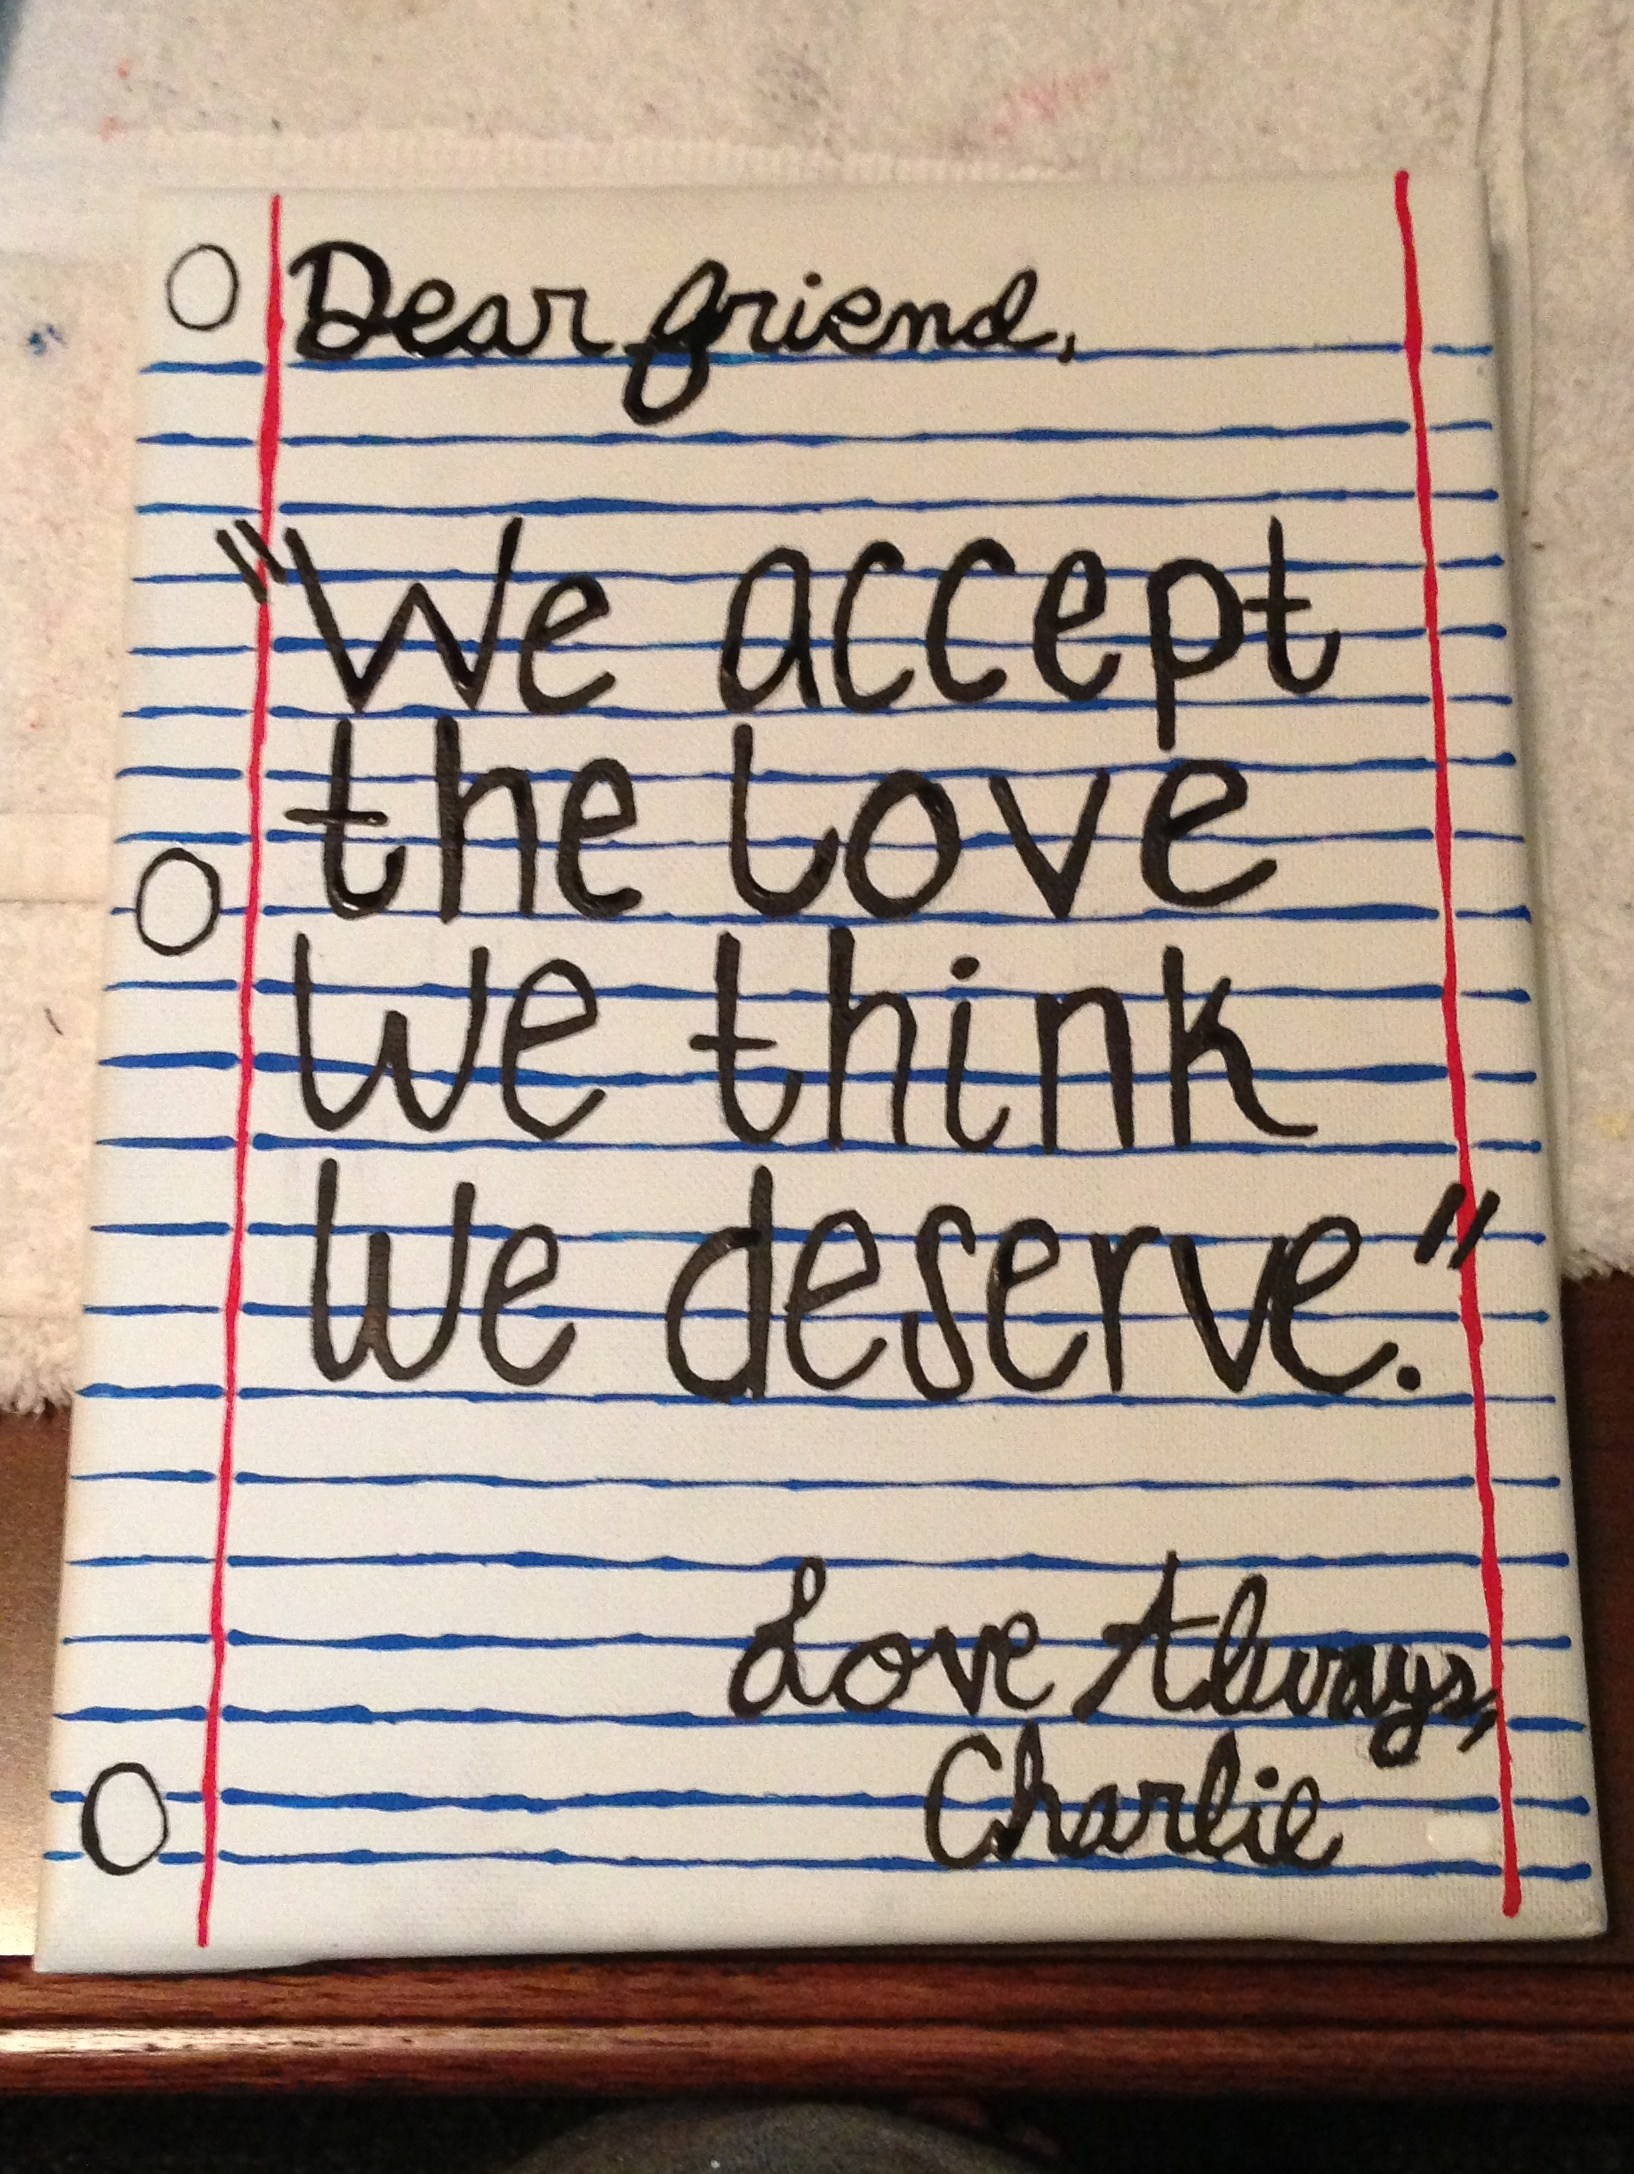 Dear friend,
"We accept
the love
we think
we deserve."
Love Always,
Charlie